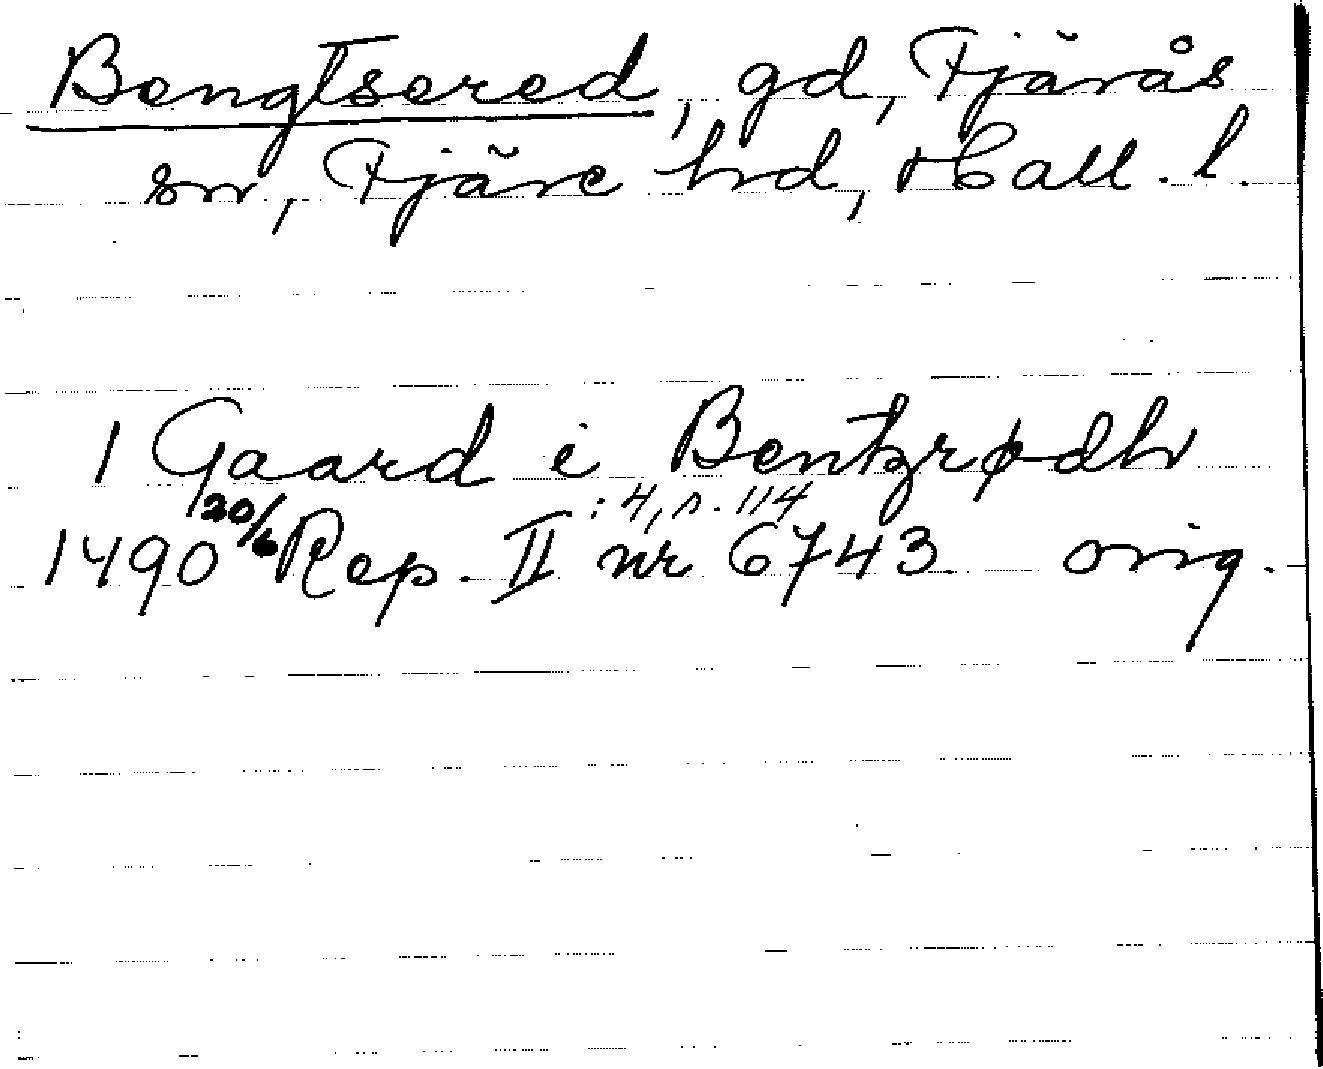 Bengtsered, gd, Fjärås
sn, Fjäre hrd, Hall. l.
1 Gaard i Bentzrødh
: 4, s. 114
1490 20/6 Rep. II nr 6743 orig.